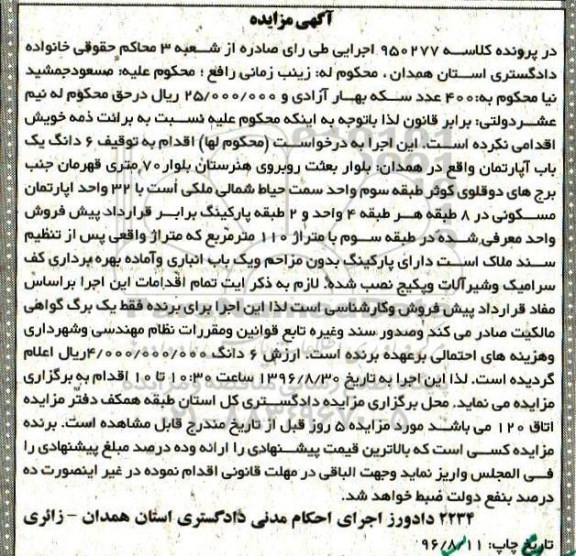 آگهی مزایده
در پرونده کلاسه ۹۵۰۲۷۷ اجرایی طی رای صادره از شعبه ۳ محاکم حقوقی خانواده
دادگستری استان همدان ، محکوم له: زینب زمانی رافع ؛ محکوم علیه: مسعودجمشید
نیا محکوم به:۴۰۰ عدد سکه بهار آزادی و ۲۵/۰۰۰/۰۰۰ ریال درحق محکوم له نیم
عشردولتی: برابر قانون لذا باتوجه به اینکه محکوم علیه نسبت به برائت ذمه خویش
اقدامی نکرده است. این اجرا به درخواست (محکوم لها) اقدام به توقیف ۶ دانگ یک
باب آپارتمان واقع در همدان: بلوار بعثت روبروی هنرستان بلوار ۷۰ متری قهرمان جنب
برج های دوقلوی کوثر طبقه سوم واحد سمت حیاط شمالی ملکی است با ۳۲ واحد اپارتمان
مسکونی در ۸ طبقه هر طبقه ۴ واحد و ۲ طبقه پارکینگ برابر قرارداد پیش فروش
واحد معرفی شده در طبقه سوم با متراژ ۱۱۰ مترمربع که متراژ واقعی پس از تنظیم
سند ملاک است دارای پارکینگ بدون مزاحم ویک باب انباری وآماده بهره برداری کف
سرامیک وشیرآلات وپکیج نصب شده. لازم به ذکر ایت تمام اقدامات این اجرا براساس
مفاد قرارداد پیش فروش وکارشناسی است لذا این اجرا برای برنده فقط یک برگ گواهی
مالکیت صادر می کند وصدور سند وغیره تابع قوانین ومقررات نظام مهندسی وشهرداری
وهزینه های احتمالی برعهده برنده است. ارزش ۶ دانگ ۴/۰۰۰/۰۰۰/۰۰۰ریال اعلام
گردیده است. لذا این اجرا به تاریخ ۱۳۹۶/۸/۳۰ ساعت ۱۰:۳۰ تا ۱۰ اقدام به برگزاری
مزایده می نماید. محل برگزاری مزایده دادگستری کل استان طبقه همکف دفتر مزایده
اتاق ۱۲۰ می باشد مورد مزایده ۵ روز قبل از تاریخ مندرج قابل مشاهده است. برنده
مزایده کسی است که بالاترین قیمت پیشنهادی را ارائه وده درصد مبلغ پیشنهادی را
فی المجلس واریز نماید وجهت الباقی در مهلت قانونی اقدام نموده در غیر اینصورت ده
درصد بنفع دولت ضبط خواهد شد.
۲۲۳۴ دادورز اجرای احکام مدنی دادگستری استان همدان - زائری
تاریخ چاپ: ۹۶/۸/۱۱